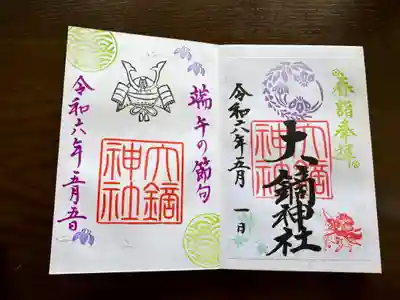 春詣奉拝
大鏑神社
大鏑
神社
令和六年五月一日
端午の節句
大鏑
神社
令和六年五月五日